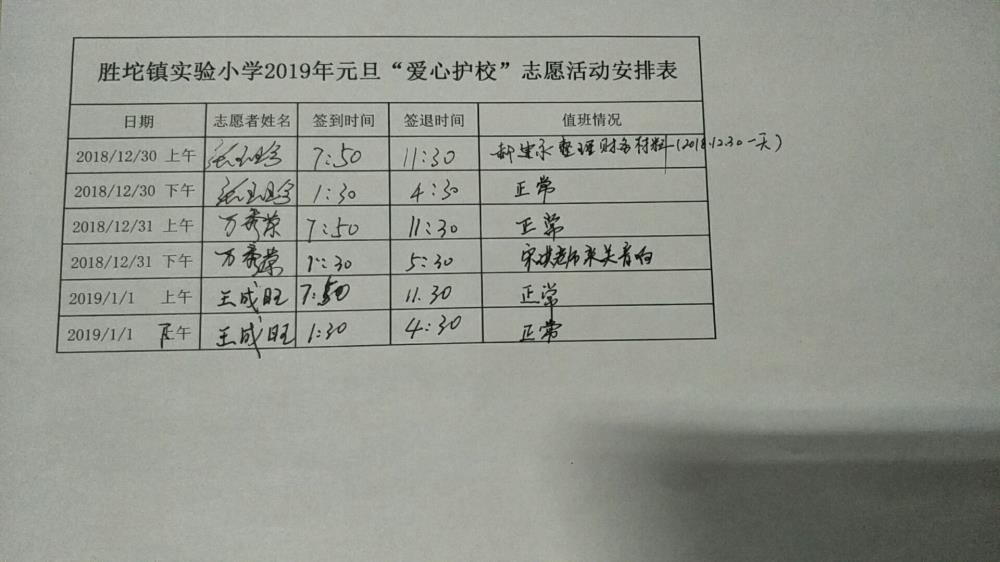 胜坨镇实验小学2019年元旦“爱心护校”志愿活动安排表
日期 志愿者姓名 签到时间 签退时间 值班情况
2018/12/30 上午 7:50 11:30 整理财务材料(2018.12.30一天)
2018/12/30 下午 1:30 4:30 正常
2018/12/31 上午 万秀荣 7:50 11:30 正常
2018/12/31 下午 万秀荣 1:30 5:30 老师来关音响
2019/1/1 上午 王成旺 7:50 11.30 正常
2019/1/1 下午 王成旺 1:30 4:30 正常